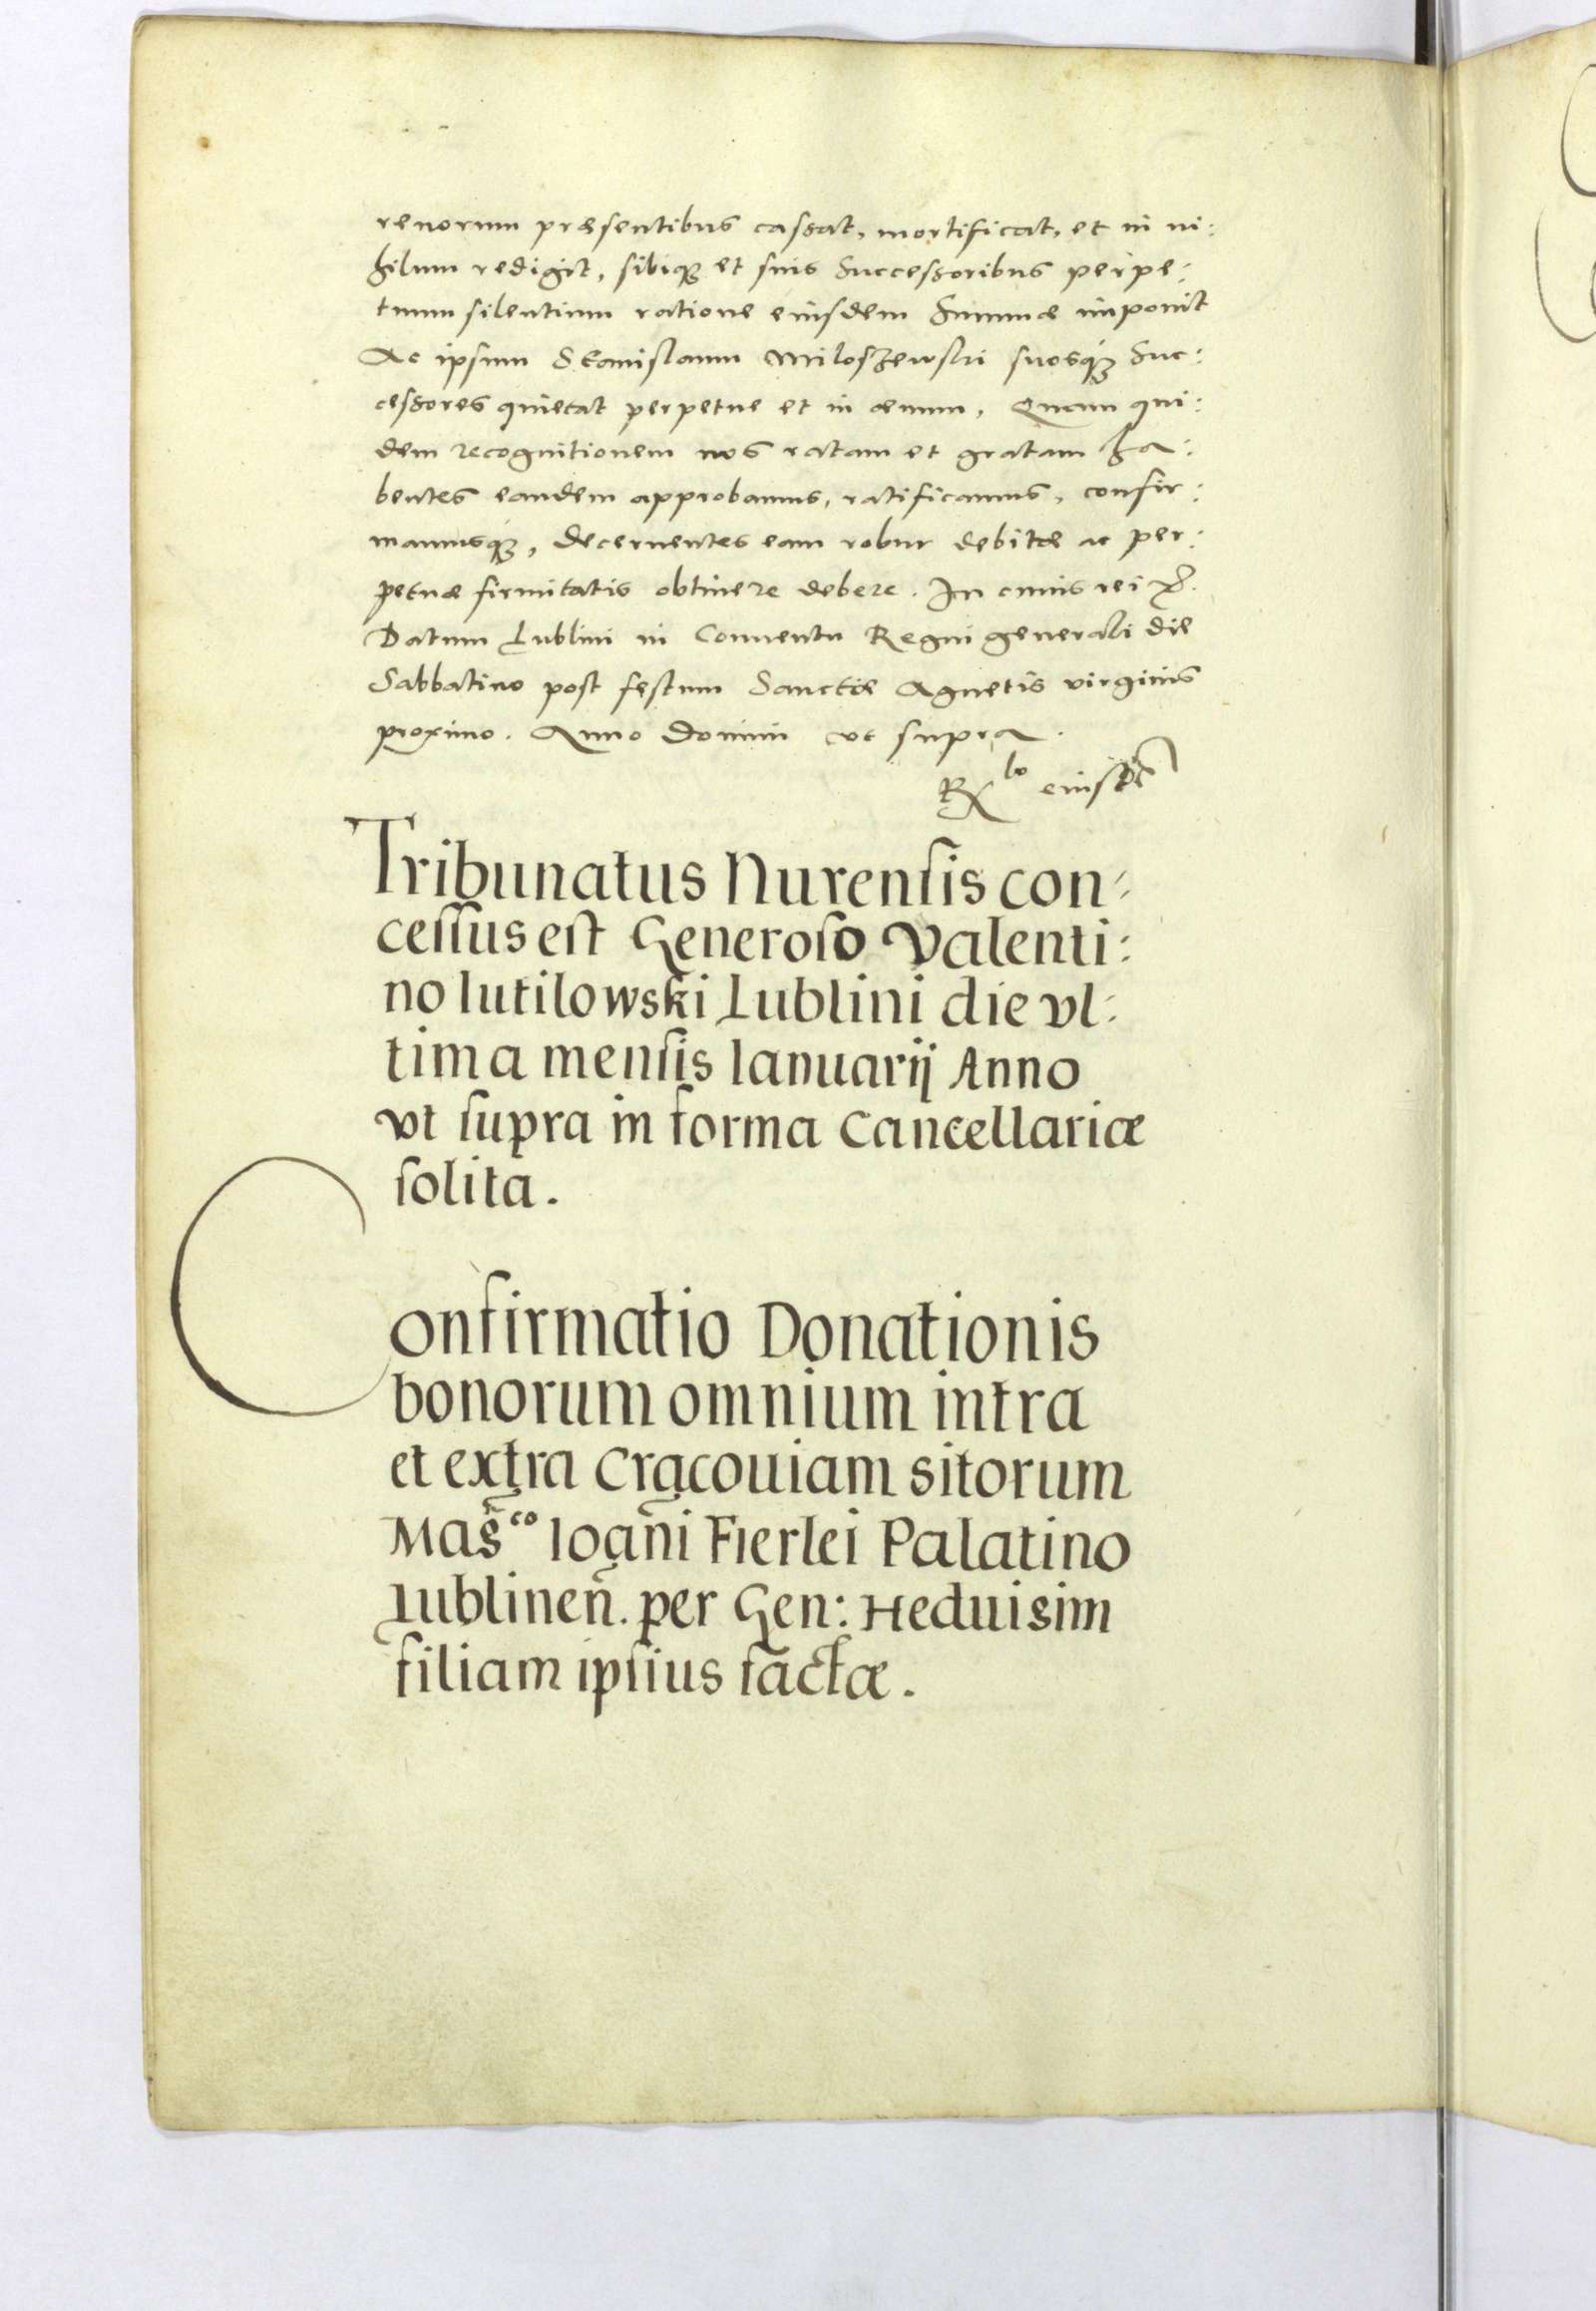 renorum præsentibus cassat, mortificat, et in ni:
hilum redigit, sibiq; et suis Successoribus perpe:
tuum silentium ratione eiusdem Summæ imponit
Ac ipsum Stanislaum Miloszewski suosq; Suc:
cessores quietat perpetue et in æuum, Quam qui:
dem recognitionem nos ratam et gratam ha:
bentes eandem approbamus, ratificamus, confir:
mamusq;, decernentes eam robur debitæ ac per:
petuæ firmitatis obtinere debere. In cuius rei
Datum Lublini in Conuentu Regni generali die
Sabbatino post festum Sanctæ Agnetis virginis
proximo. Anno Domini vt supra.
eiusdem
Tribunatus Nurensis con:
cessus est Generoso Valenti:
no lutilowski Lublini die vl:
tima mensis Ianuarij Anno
vt supra in forma Cancellariæ
solita.
Confirmatio Donationis
bonorum omnium intra
et extra Cracouiam sitorum
Mag̃co Ioañi Fierlei Palatino
Lublineñ. per Gen: Heduisim
filiam ipsius factæ.